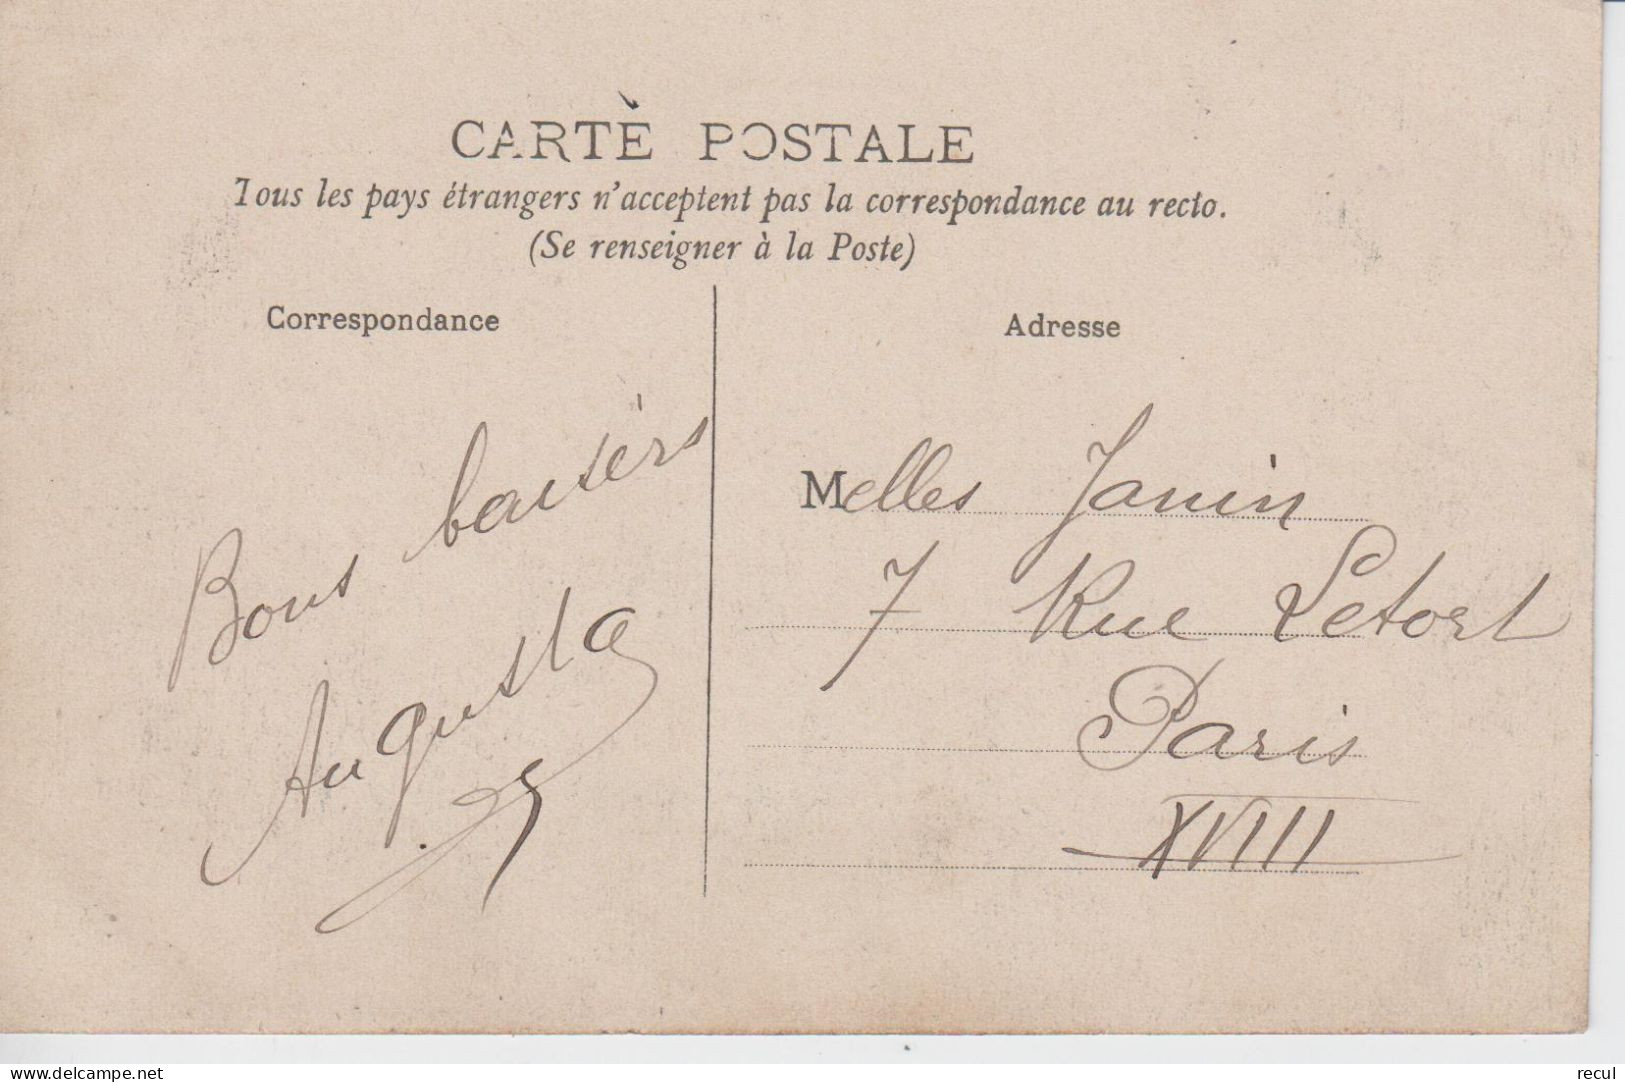 CARTE POSTALE
Tous les pays étrangers n'acceptent pas la correspondance au recto.
(Se renseigner à la Poste)
Correspondance
Bons baisers
Augusta
Adresse
Melles Janin
7 Rue Letort
Paris
XVIII
delcampe.net
recul